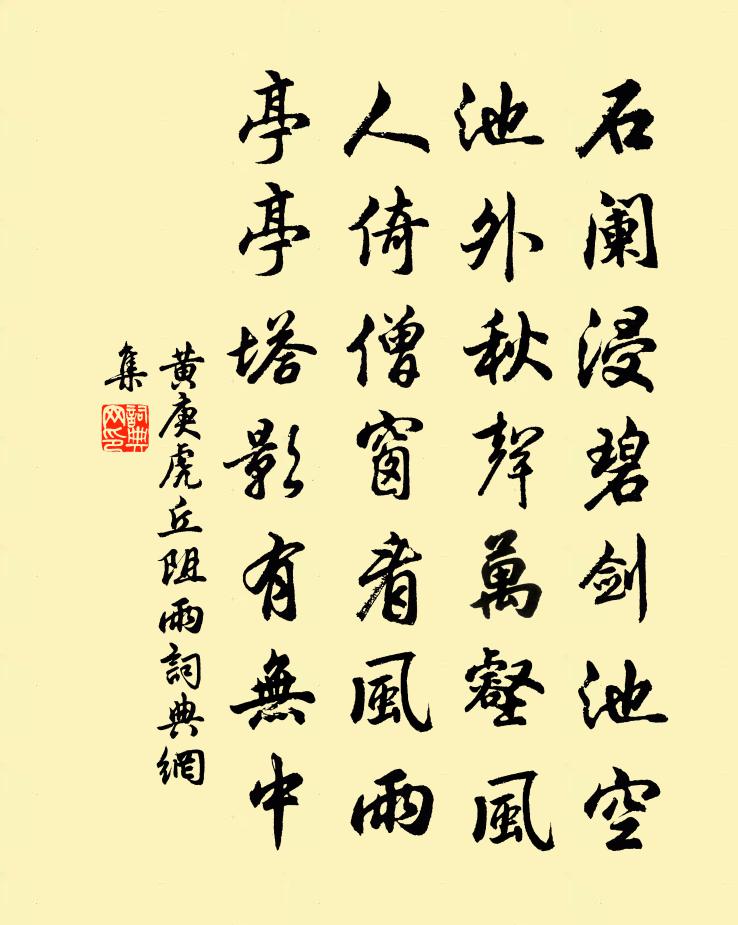 石阑浸碧剑池空
池外秋聲萬壑風
人倚僧窗看風雨
亭亭塔影有無中
黄庚虎丘阻雨詞典網
集
詞典
网印